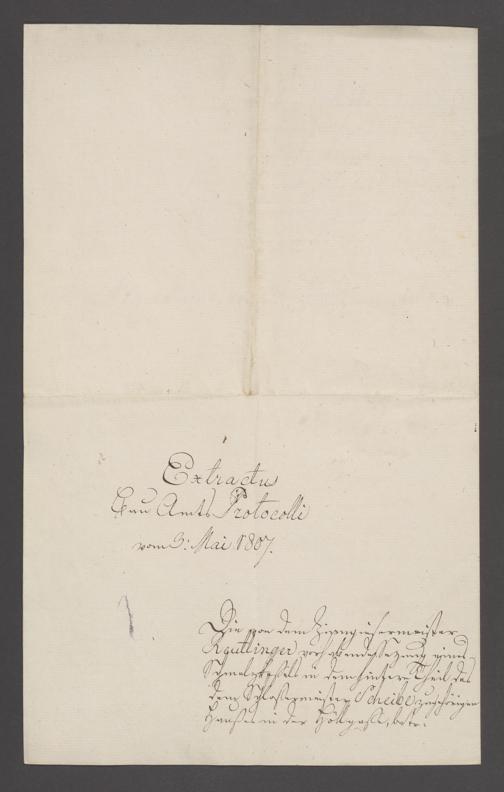 Extractus
Bau Amts Protocolli
vom 3: Mai 1807.
Die von dem Zinngiesermeister
Reutlinger vorhabende Setzung eines
Schmelzkeßels in dem hintern Theil des
dem Schlossermeister Scheibe zugehörigen
Hauses in der Höllgasse, betr: